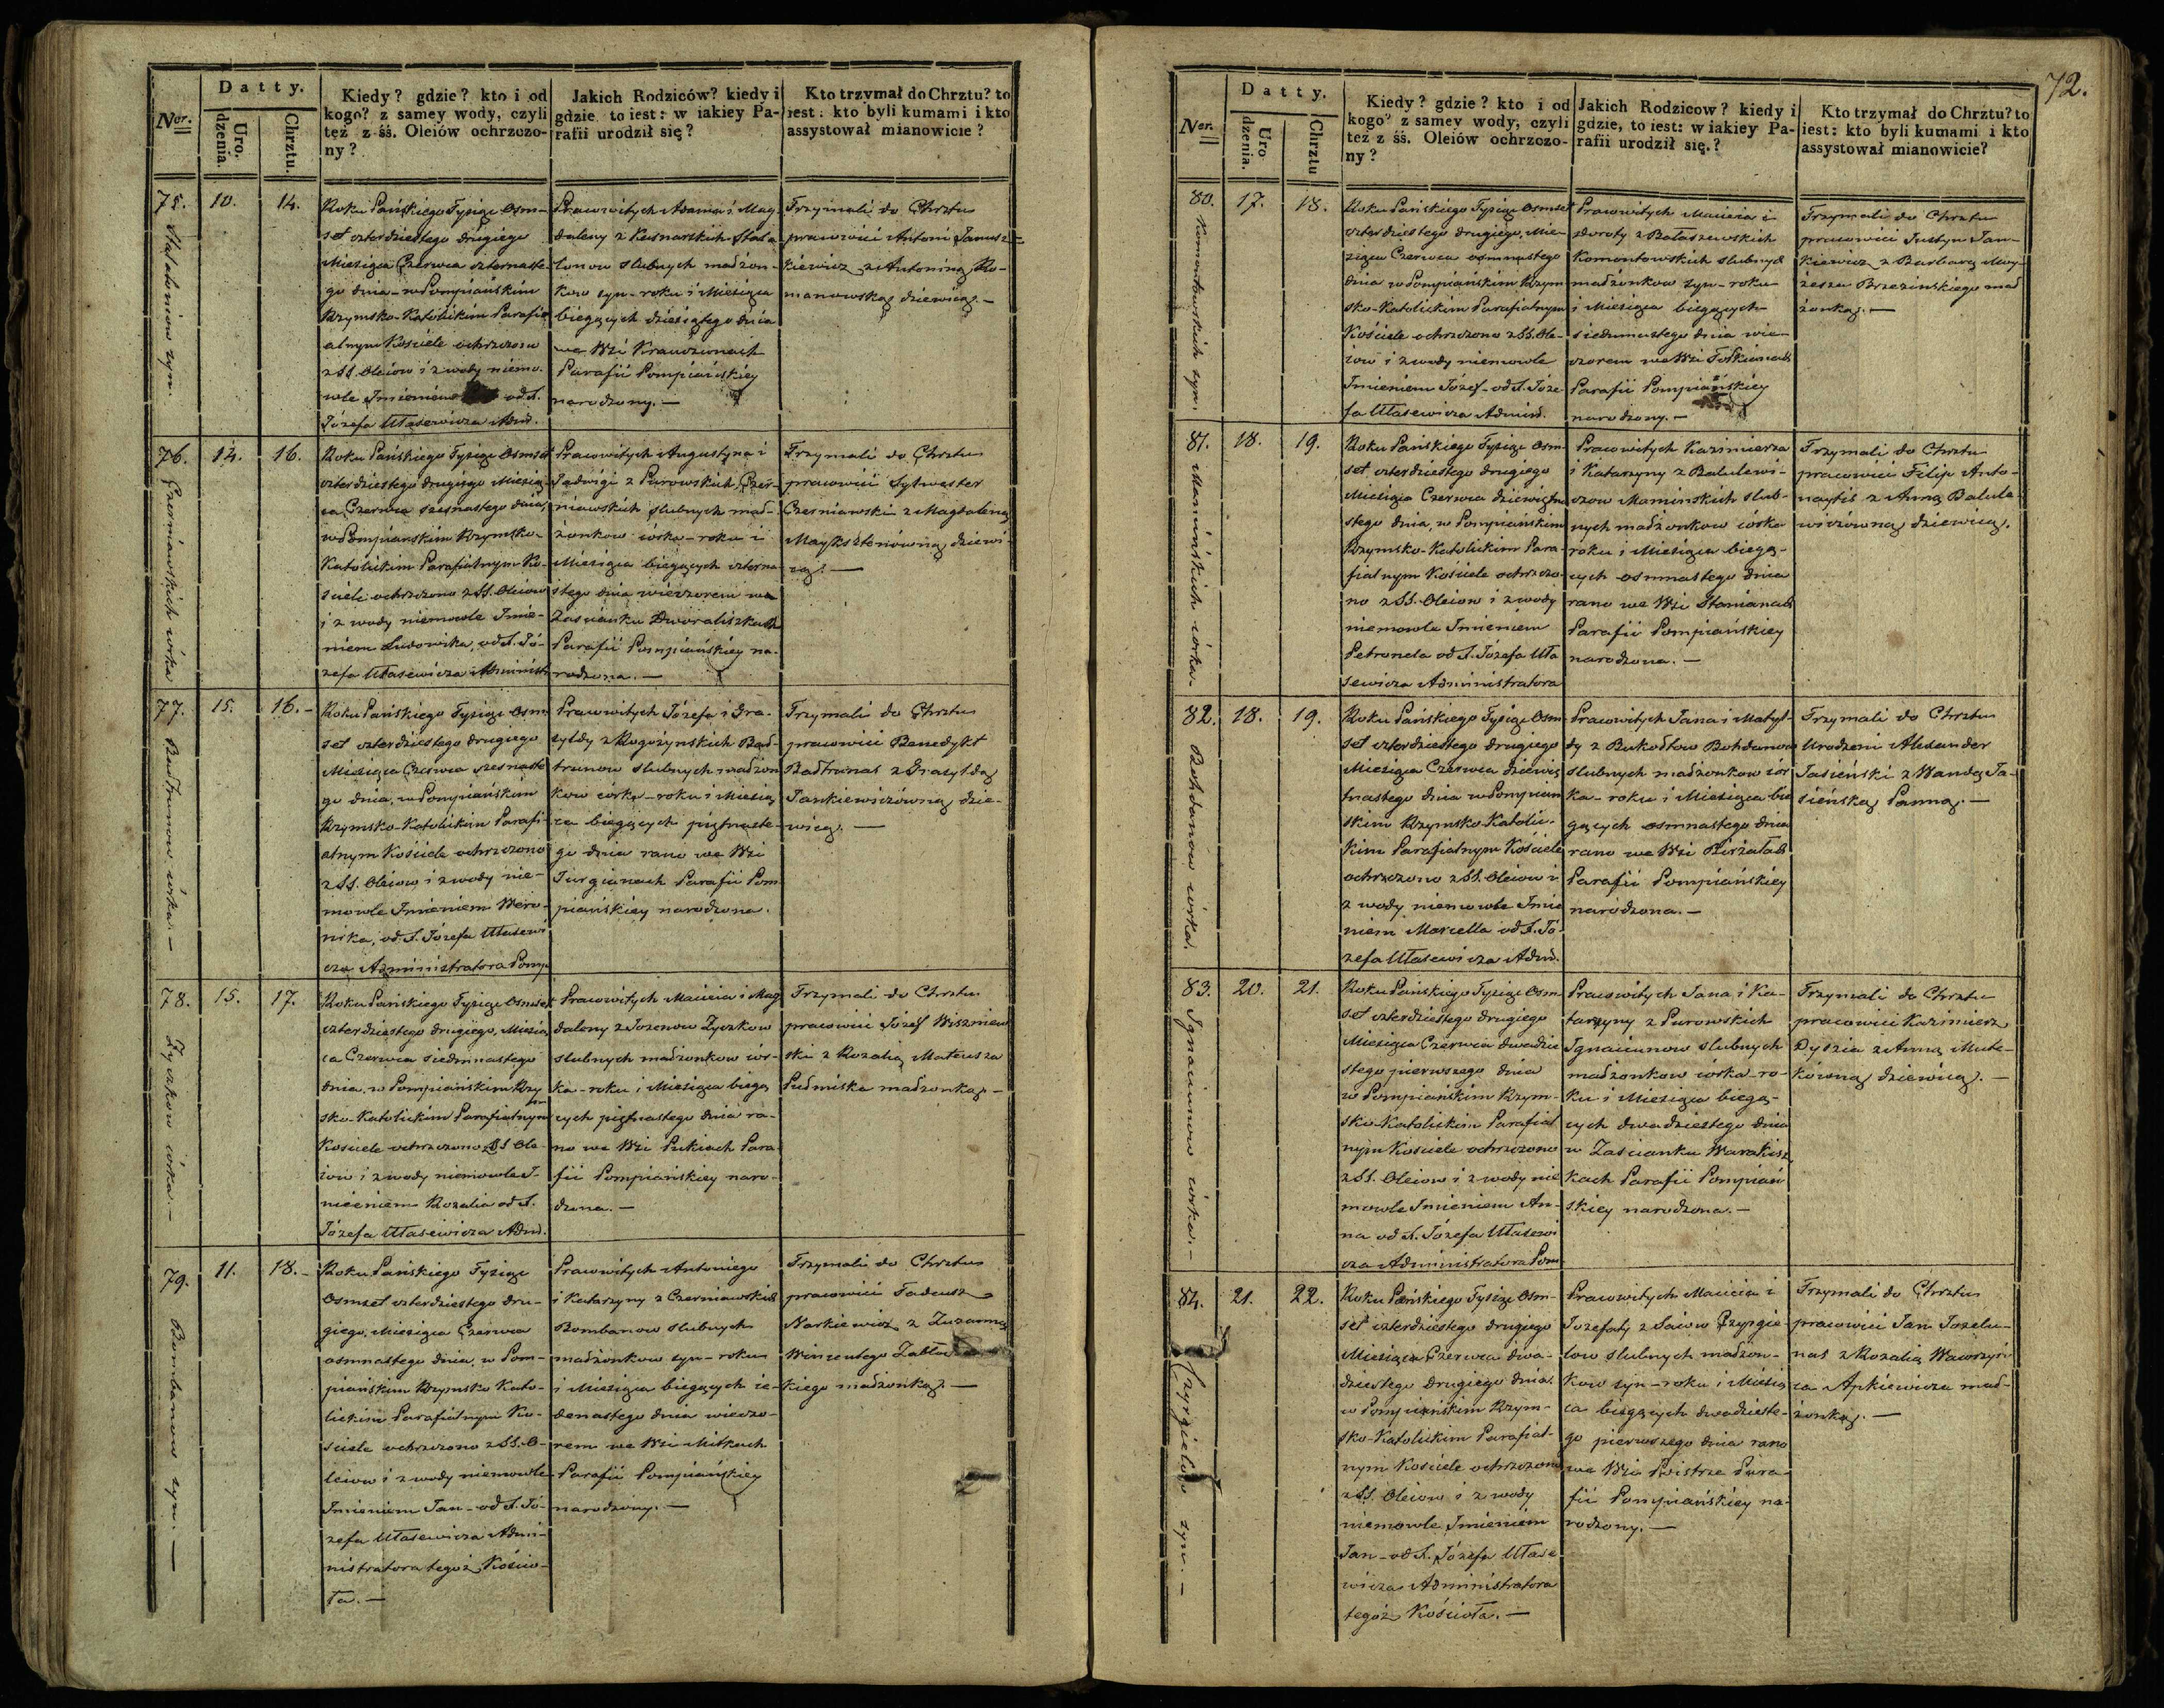 72.
Datty.
Ner.
Uro.
dzenia.
Chrztu.
Kiedy? gdzie? kto i od
kogo? z samey wody, czyli
też z śś. Oleiów ochrzczo-
ny?
Jakich Rodziców? kiedy i
gdzie, to iest: w iakiey Pa-
rafii urodził się?
Kto trzymał do Chrztu? to
iest: kto byli kumami i kto
assystował mianowicie?
75.
10.
14.
Roku Pańskiego Tysiąc Osm-
set czterdziestego drugiego
Miesiąca Czerwca czternaste-
go dnia - w Pompiańskim
Rzymsko-Katolickim Parafi-
alnym Kościele ochrzczono
z SS. Oleiow i z wody niemo-
wle Imieniem od X.
Józefa Ułasewicza Adm.
Prawowitych Adama i Mag-
daleny z Kusnarskich Stała-
łonow slubnych małżon-
kow syn - roku i Miesiąca
bieżących dziesiątego dnia
we Wsi Krawdzionach
Parafii Pompiańskiey
narodzony. -
Trzymali do Chrztu
pracowici Antoni Janusz-
kiewicz z Antoniną Ro-
manowską dziewicą. -
76.
14.
16.
Czerniawskich córka
Roku Pańskiego Tysiąc Osmset
czterdziestego drugiego Miesią-
ca Czerwca szesnastego dnia,
w Pompiańskim Rzymsko-
Katolickim Parafialnym Ko-
ściele ochrzczono z SS. Oleiow
i z wody niemowle Imie-
niem Ludowika, od X. Jó-
zefa Ułasewicza Administ.
Prawowitych Augustyna i
Jadwigi z Purowskich Czer-
niawskich slubnych mał-
żonkow córka - roku i
Miesiąca bieżących czterna-
stego dnia wieczorem we
Zaścianku Dworaliszkach
Parafii Pompiańskiey na-
rodzona. -
Trzymali do Chrztu
pracowici Sylwester
Czerniawski z Magdaleną
Mayksztonówną dziewi-
cą. -
77.
15.
16. -
Badtrunow córka. -
Roku Pańskiego Tysiąc Osm-
set czterdziestego drugiego
Miesiąca Czerwca szesnaste-
go dnia, w Pompiańskim
Rzymsko-Katolickim Parafi-
alnym Kościele ochrzczono
z SS. Oleiow i z wody nie-
mowle Imieniem Wero-
nika, od X. Józefa Ułasewi-
cza Administratora Pomp.
Prawowitych Józefa i Gra-
syldy z Rogożynskich Bad-
trunow slubnych małżon-
kow corka - roku i Miesią-
ca bieżących piętnaste-
go dnia rano we Wsi
Jurgianach Parafii Pom-
piańskiey narodzona.
Trzymali do Chrztu
pracowici Benedykt
Badtrunas z Grasyldą
Jankiewiczówną dzie-
wicą. -
78.
15.
17.
Zyczkow córka. -
Roku Pańskiego Tysiąc Osmset
czterdziestego drugiego, Miesią-
ca Czerwca siedmnastego
dnia, w Pompiańskim Rzym-
sko-Katolickim Parafialnym
Kosciele ochrzczono z SS Ole-
iow i z wody niemowle I-
mieniem Rozalia od X.
Józefa Ułasewicza Adm.
Prawowitych Macieia i Mag-
daleny z Jozenow Zyczkow
slubnych małżonkow cór-
ka - roku i Miesiąca bieżą-
cych piętnastego dnia ra-
no we Wsi Pukiach Para-
fii Pompiańskiey naro-
dzona. -
Trzymali do Chrztu
pracowici Józef Wiszniew-
ski z Rozalią Mateusza
Pudmiska małżonką -
79.
11.
18. -
Bombanow syn. -
Roku Pańskiego Tysiąc
Osmset czterdziestego dru-
giego, Miesiąca Czerwca
osmnastego dnia, w Pom-
piańskim Rzymsko Kato-
lickim Parafialnym Ko-
ściele ochrzczono z SS. O-
leiow i z wody niemowle
Imieniem Jan - od X. Jó-
zefa Ułasewicza Admi-
nistratora tegoż Kościo-
ła. -
Prawowitych Antoniego
i Katarzyny z Czerniawskich
Bombanow slubnych
małżonkow syn - roku
i Miesiąca bieżących ie-
denastego dnia wieczo-
rem we Wsi Mitkach
Parafii Pompiańskiey
narodzony. -
Trzymali do Chrztu
pracowici Tadeusz
Narkiewicz z Zuzanną
Wincentego
kiego małżonką. -
Datty.
Ner.
Uro
dzenia.
Chrztu
Kiedy? gdzie? kto i od
kogo? z samey wody, czyli
też z śś. Oleiów ochrzczo-
ny?
Jakich Rodzicow? kiedy i
gdzie, to iest: w iakiey Pa-
rafii urodził się.?
Kto trzymał do Chrztu? to
iest: kto byli kumami i kto
assystował mianowicie?
80.
17.
18.
Komontowskich syn.
Roku Pańskiego Tysiąc Osmset
czterdziestego drugiego, Mie-
siąca Czerwca osmnastego
dnia w Pompiańskim Rzym-
sko-Katolickim Parafialnym
Kościele ochrzczono z SS. Ole-
iow i z wody niemowle
Imieniem Józef - od X. Józe-
fa Ułasewicza Admin.
Prawowitych Macieia i
Doroty z Bałaszewskich
Komontowskich slubnych
małżonkow syn - roku
i Miesiąca bieżących
siedmnastego dnia wie-
czorem we Wsi
Parafii Pompiańskiey
narodzony. -
Trzymali do Chrztu
pracowici Justyn Jan-
kiewicz z Barbarą Moy-
żesza Brzezinskiego mał-
żonką. -
81.
18.
19.
Maminskich córka.
Roku Pańskiego Tysiąc Osm-
set czterdziestego drugiego
Miesiąca Czerwca dziewiętna-
stego dnia, w Pompiańskim
Rzymsko-Katolickim Para-
fialnym Kościele ochrzczo-
no z SS. Oleiow i z wody
niemowle Imieniem
Petronela od X. Józefa Uła-
sewicza Administratora
Prawowitych Kazimierza
i Katarzyny z Balulewi-
czow Maminskich slub-
nych małżonkow córka
roku i Miesiąca bieżą-
cych osmnastego dnia
rano we Wsi Stanianach
Parafii Pompiańskiey
narodzona. -
Trzymali do Chrztu
pracowici Filip Anto-
naytis z Anną Balule-
wiczówną dziewicą.
82.
18.
19.
Bohdanow córka.
Roku Pańskiego Tysiąc Osm-
set czterdziestego drugiego
Miesiąca Czerwca dziewię-
tnastego dnia w Pompian-
skim Rzymsko-Katolic-
kim Parafialnym Kościele
ochrzczono z SS. Oleiow i
z wody niemowle Imie-
niem Marcella od X. Jó-
zefa Ułasewicza Adm.
Prawowitych Jana i Matyl-
dy z Bukodtow Bohdanow
slubnych małżonkow cór-
ka - roku i Miesiąca bie-
żących osmnastego dnia
rano we Wsi Birżałach
Parafii Pompiańskiey
narodzona. -
Trzymali do Chrztu
Urodzeni Alexander
Jasieński z Wandą Ja-
sieńską Panną. -
83.
20.
21.
Ignaciunow córka. -
Roku Pańskiego Tysiąc Osm-
set czterdziestego drugiego
Miesiąca Czerwca dwudzie-
stego pierwszego dnia
w Pompiańskim Rzym-
sko-Katolickim Parafial-
nym Kosciele ochrzczono
z SS. Oleiow i z wody nie-
mowle Imieniem An-
na od X. Józefa Ułasewi-
cza Administratora Pom
Prawowitych Jana i Ka-
tarzyny z Purowskich
Ignaciunow slubnych
małżonkow córka - ro-
ku i Miesiąca bieżą-
cych dwudziestego dnia
w Zascianku Warakisz-
kach Parafii Pompiań-
skiey narodzona. -
Trzymali do Chrztu
pracowici Kazimierz
Dyszia z Anną Mute-
kówną dziewicą. -
84.
21.
22.
Czyrgielow syn. -
Roku Pańskiego Tysiąc Osm-
set czterdziestego drugiego
Miesiąca Czerwca dwu-
dziestego drugiego dnia
w Pompiańskim Rzym-
sko-Katolickim Parafial-
nym Kosciele ochrzczono
z SS. Oleiow i z wody
niemowle Imieniem
Jan - od X. Józefa Ułase-
wicza Administratora
tegoż Kościoła. -
Prawowitych Macieia i
Jozefaty z Saiow Czyrgie-
low slubnych małżon-
kow syn - roku i Miesią-
ca bieżących dwudzieste-
go pierwszego dnia rano
we Wsi Swistrze Para-
fii Pompiańskiey na-
rodzony. -
Trzymali do Chrztu
pracowici Jan Jozelu-
nas z Rozalią Wawrzyń-
ca Apkiewicza mał-
żonką. -